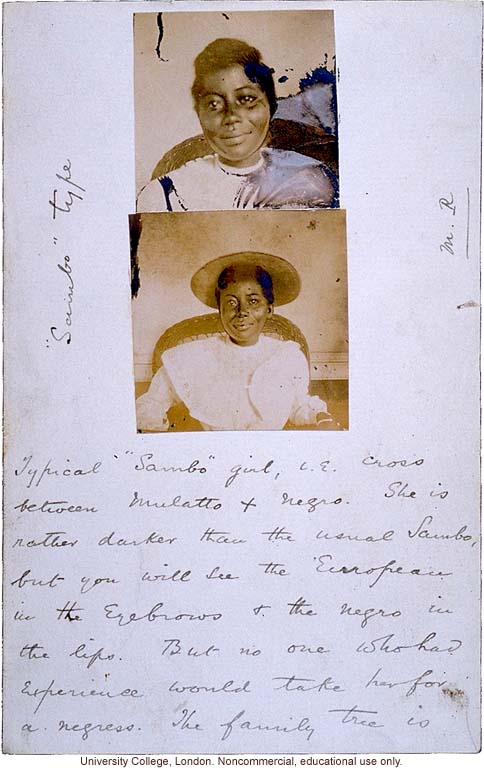 "Sambo" type
M. R
Typical "Sambo" girl, i.e. cross
between Mulatto & negro. She is
rather darker than the usual Sambo,
but you will see the European
in the Eyebrows & the negro in
the lips. But no one who had
Experience would take her for
a negress. The family tree is
University College, London. Noncommercial, educational use only.